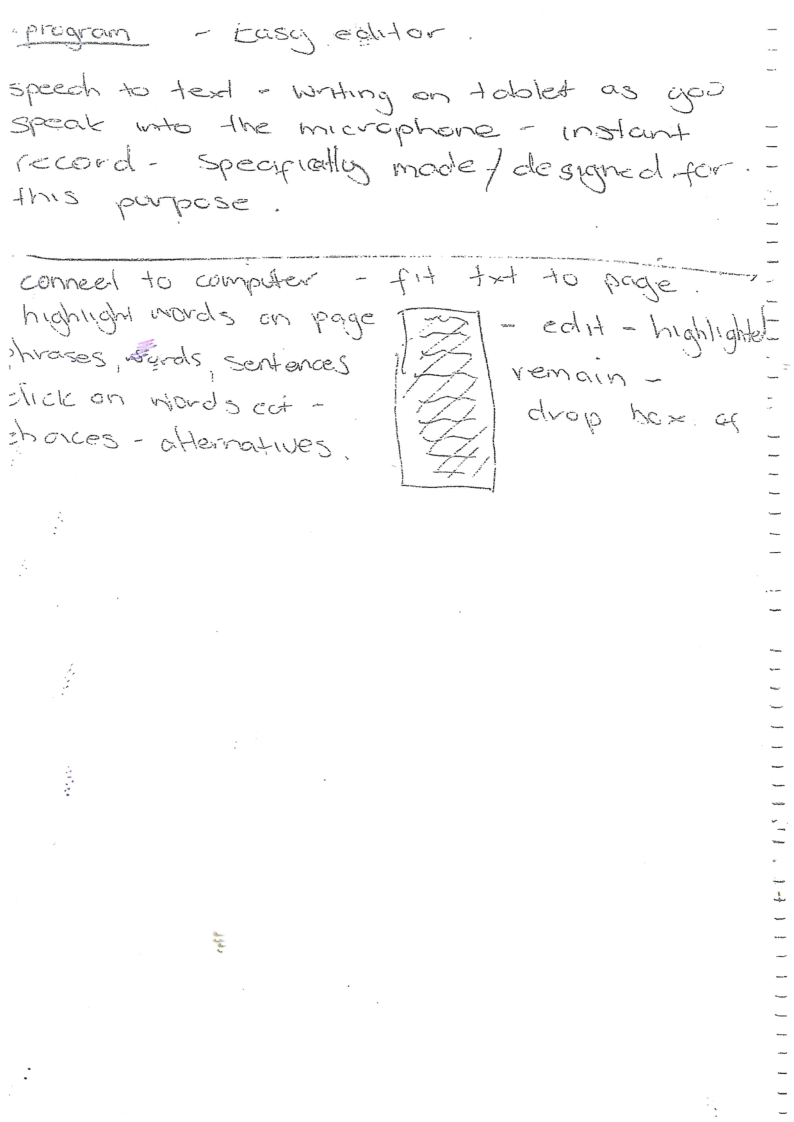 program - Easy editor.
speech to text - writing on tablet as you
speak into the microphone - instant
record - specifically made / designed for
this purpose.
connect to computer - fit txt to page.
highlight words on page
phrases, words, sentences
click on words cot -
choices - alternatives.
- edit - highlighted
remain -
drop box of